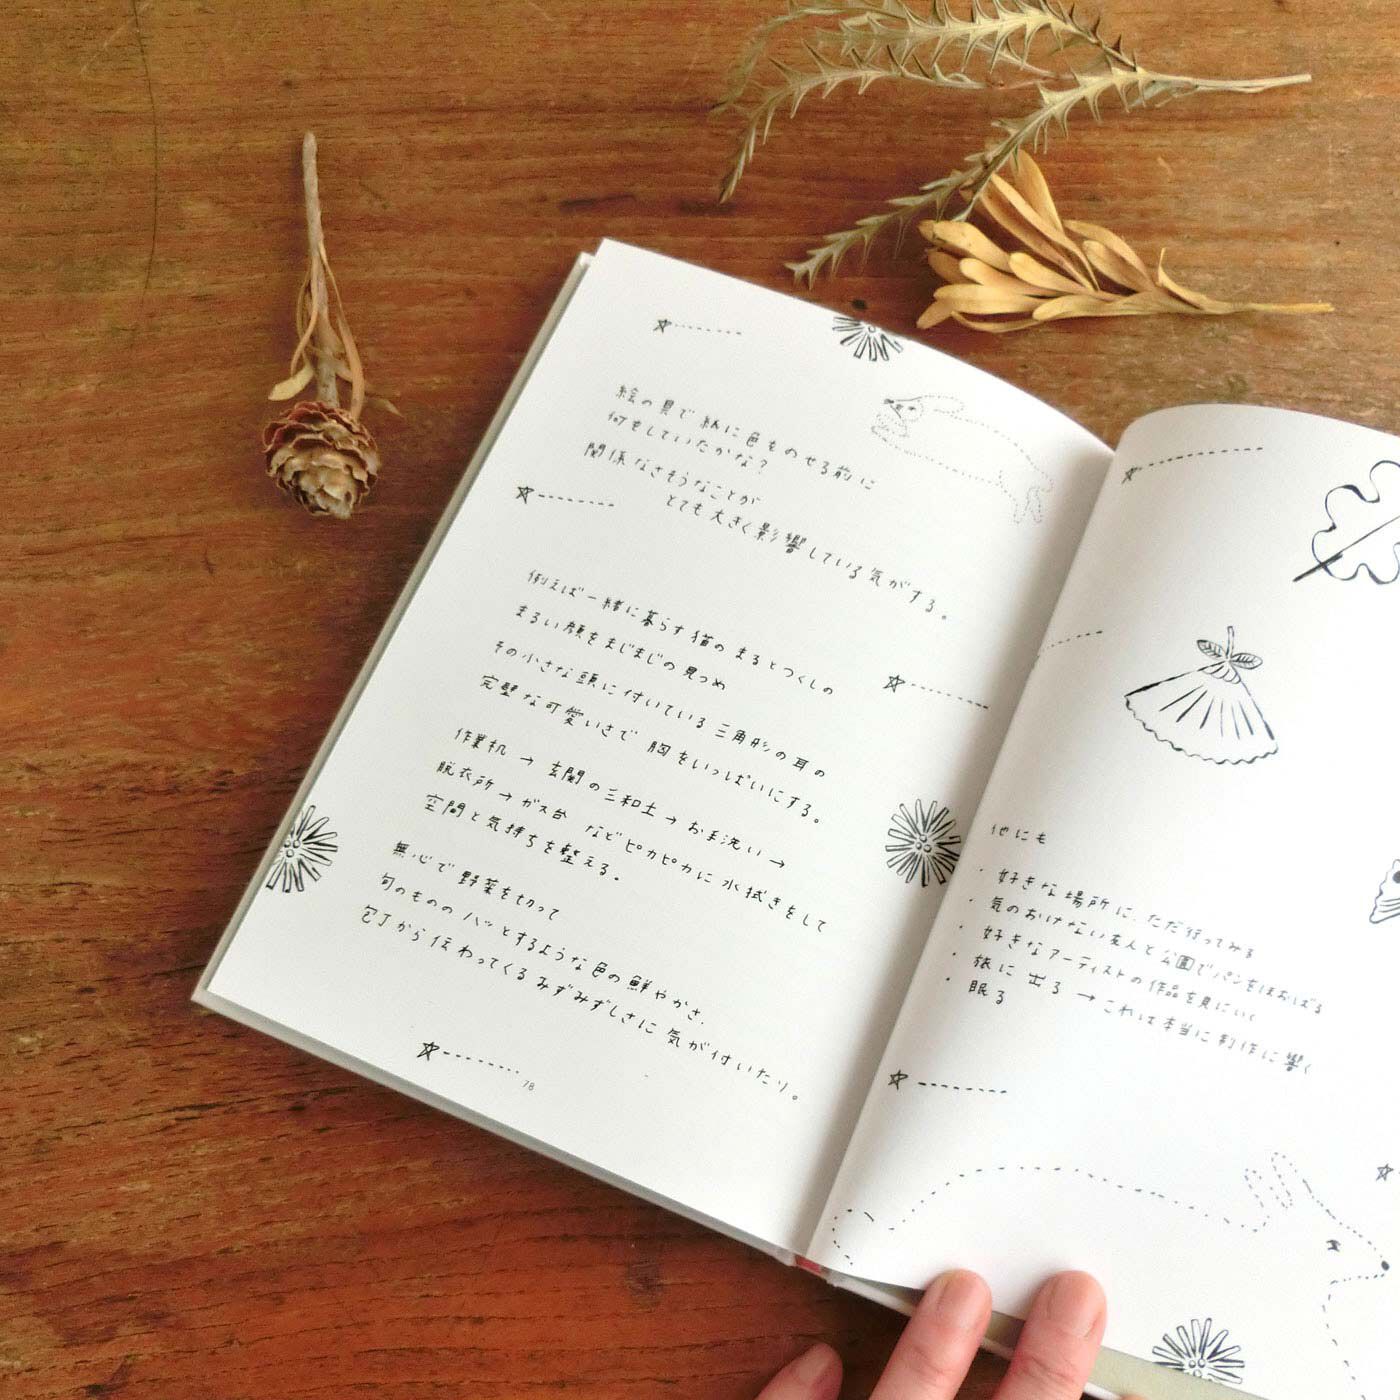 絵の具で紙に色をのせる前に
何をしていたかな?
関係なさそうなことが
とても大きく影響している気がする。
例えば一緒に暮らす猫のまるとつくしの
まるい顔をまじまじの見つめ
その小さな頭に付いている三角形の耳の
完璧な可愛いさで胸をいっぱいにする。
作業机→玄関の三和土→お手洗い→
脱衣所→ガス台などピカピカに水拭きをして
空間と気持ちを整える。
無心で野菜を切って
旬のもののハッとするような色の鮮やかさ、
包丁から伝わってくるみずみずしさに気が付いたり。
78
他にも
・好きな場所に、ただ行ってみる
・気のおけない友人と公園でパンをほおばる
・好きなアーティストの作品を見にいく
・旅に出る→これは本当に制作に響く
・眠る